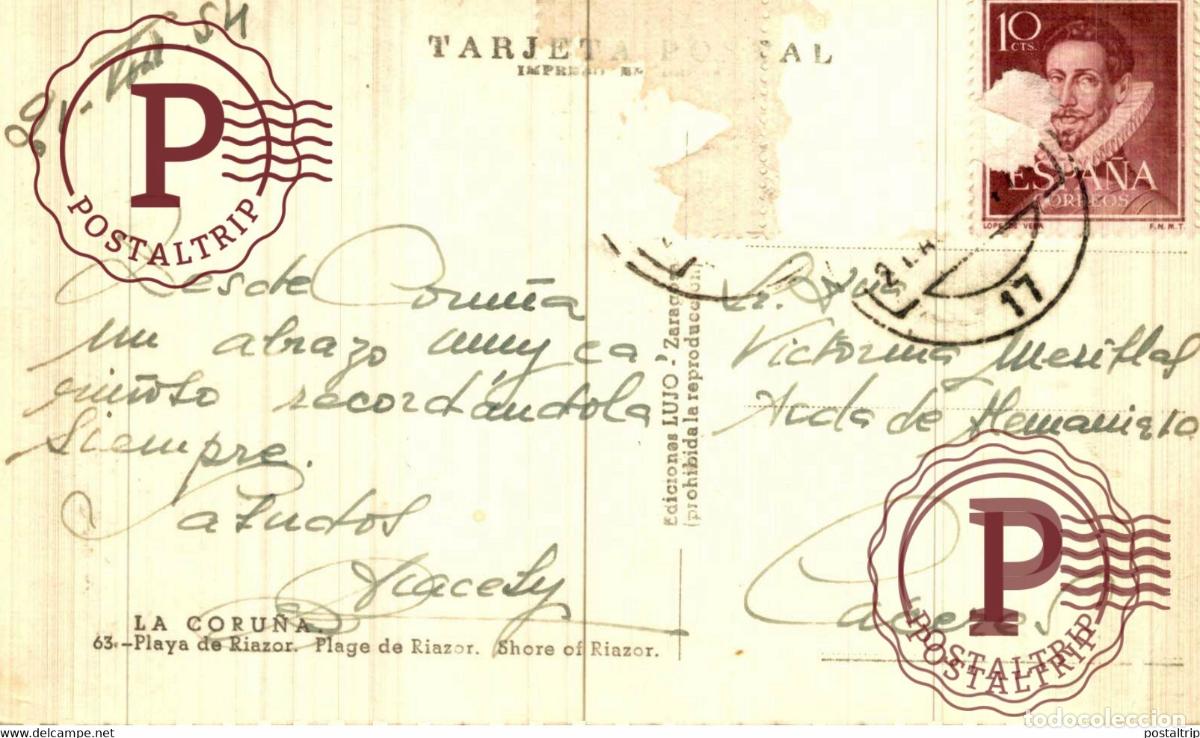 TARJETA POSTAL
10
CTS.
ESPAÑA
CORREOS
LOPE DE VEGA F.N.M.T.
17
P
POSTALTRIP
Desde Coruña
un abrazo muy ca
riñoso recordándola
siempre.
Saludos
Aracely
Ediciones LUJO - Zaragoza
(prohibida la reproducción
Victorina
Avda de
Cáceres
LA CORUÑA.
63.-Playa de Riazor. Plage de Riazor. Shore of Riazor.
P
POSTALTRIP
POSTALTRIP
todocoleccion
www.delcampe.net
postaltrip